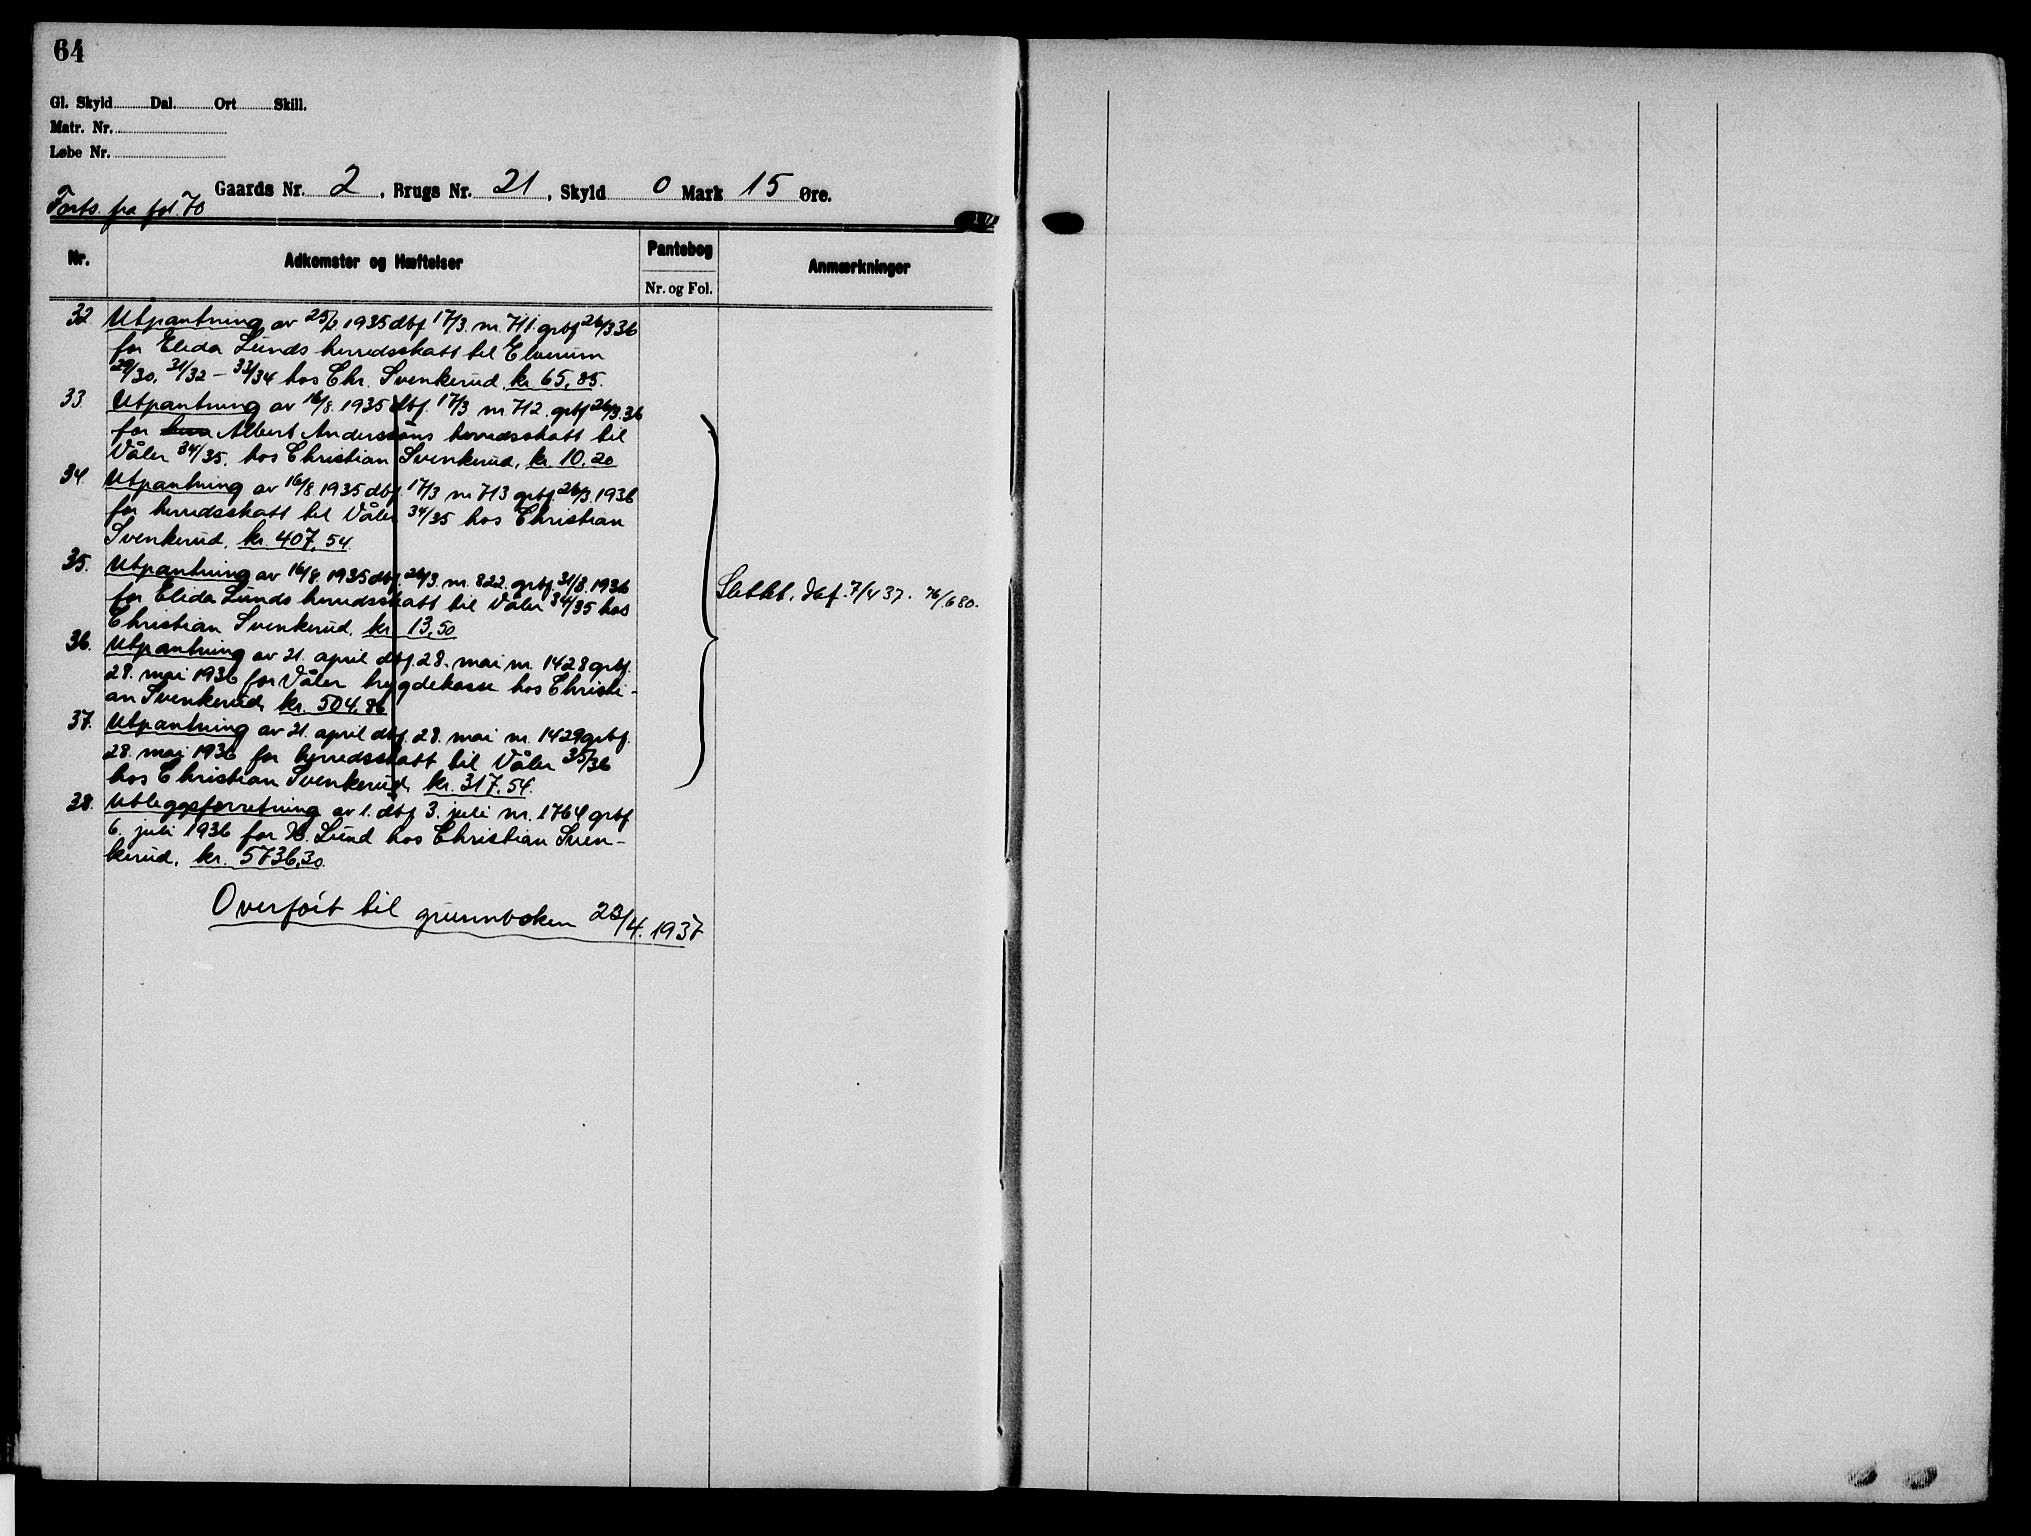 64
Gl. Skyld Dal. Ort Skill.
Matr. Nr.
Løbe Nr.
Gaards Nr. 2, Brugs Nr. 21, Skyld 0 Mark 15 Øre.
Forts. fra fol. 70
Nr. Adkomster og Hæftelser Pantebog Nr. og Fol. Anmærkninger
32. Utpantning av 1935 dbf 17/3. nr. 711. grbf 26/3 36
for Elida Lunds herredsskatt til Elverum
29/30, 31/32 – 33/34 hos Chr. Svenkerud. kr. 65,85.
33. Utpantning av 16/8. 1935 dbf. 17/3 nr 712. grbf 26/3. 36
for Albert Anderssons herredsskatt til
Våler 34/35. hos Christian Svenkerud. kr. 10,20
34. Utpantning av 16/8. 1935 dbf. 17/3 nr 713 grbf. 26/3. 1936
for herredsskatt til Våler 34/35 hos Christian
Svenkerud. kr. 407,54.
35. Utpantning av 16/8. 1935 dbf. 26/3. nr. 822. grbf. 31/8. 1936
for Elida Lunds herredsskatt til Våler 34/35 hos
Christian Svenkerud. kr 13,50
Slettet. Def. 7/4 37. 76/680.
36. Utpantning av 21. april dbf. 28. mai nr. 1428 grbf.
28. mai 1936 for Våler trygdekasse hos Christi-
an Svenkerud, kr. 504,86
37. Utpantning av 21. april dbf. 28. mai nr. 1429 grbf.
28. mai 1936 for herredsskatt til Våler 35/36
hos Christian Svenkerud, kr. 317,54.
38. Utleggsforretning av 1. dbf 3. juli nr. 1764 grbf
6. juli 1936 for Lund hos Christian Sven-
kerud. kr. 5736,30.
Overført til grunnboken 23/4. 1937